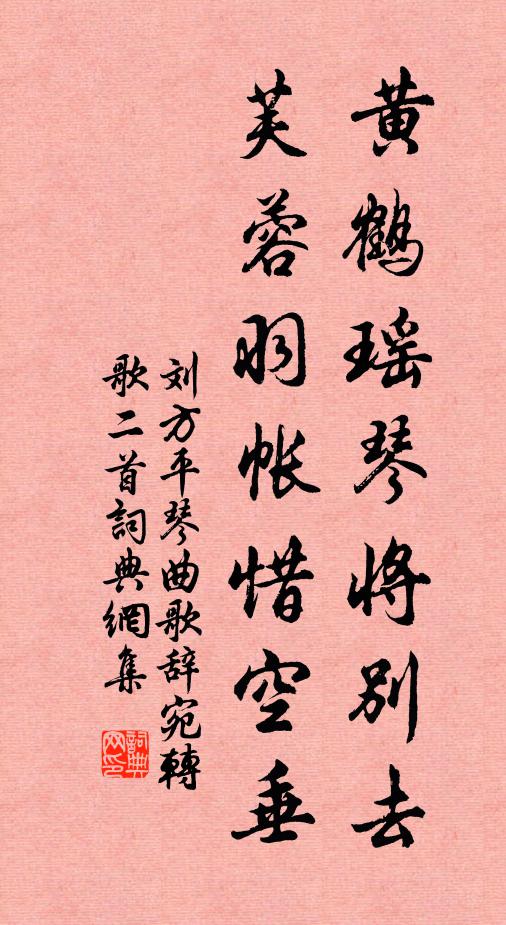 黄鹤瑶琴将别去
芙蓉羽帐惜空垂
刘方平琴曲歌辞宛轉
歌二首詞典網集
詞典
网印